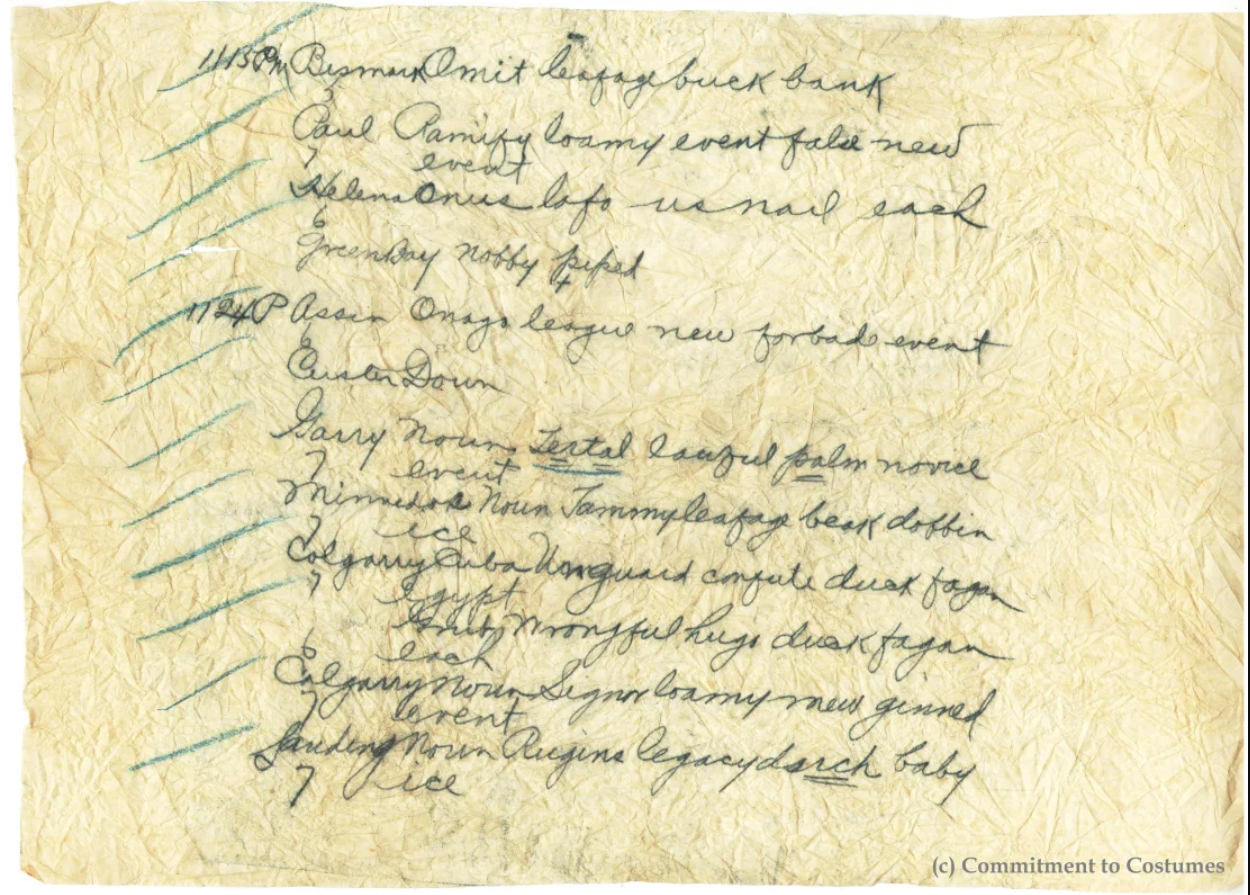 1113PM Bismark Omit leafage buck bank
Paul Ramify loamy event false new
7 event
Helena Onus lofo usnail each
6
GreenBay nobby piped
1124P Assin Onago league new forbade event
6
Custer Down
Garry Noun Tertal lawful palm novice
7 event
Minnedos Noun Jammy leafage beak dobbin
7 ice
Calgarry Cuba Unguard confute duck fagan
7 Egypt
Wrongful hugo duck fagan
6 each
Calgarry Noun Signor loamy new ginned
7 event
Landing Noun Rugins legacy dsrch baby
7 ice
(c) Commitment to Costumes